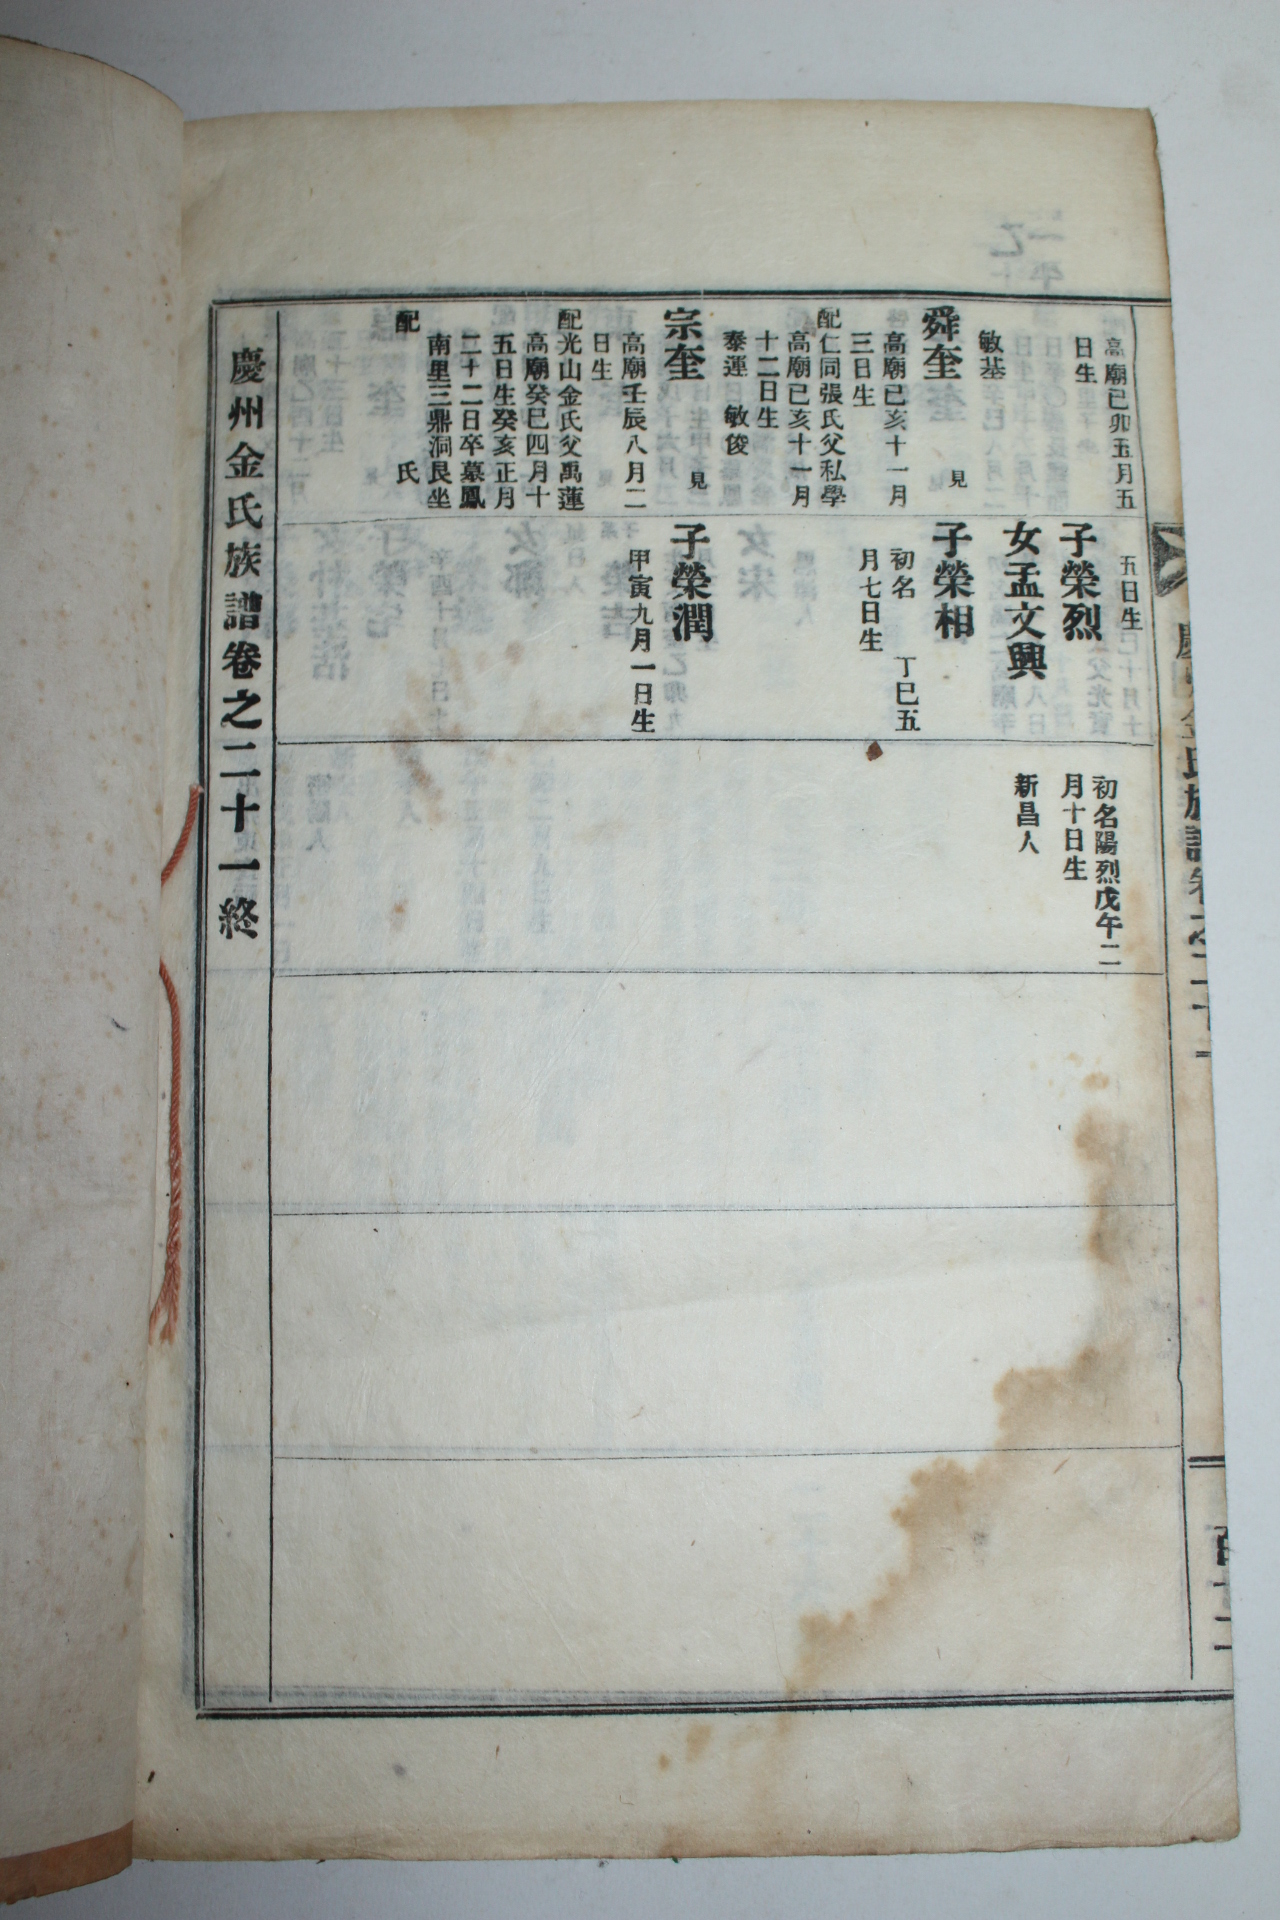 高廟己卯五月五
日生
敏基
舜奎
見
高廟己亥十一月
三日生
配仁同張氏父私學
高廟己亥十一月
十二日生
泰運 敏俊
宗奎
見
高廟壬辰八月二
日生
配光山金氏父禹蓮
高廟癸巳四月十
五日生癸亥正月
二十二日卒墓鳳
南里三鼎洞艮坐
配 氏
五日生
子榮烈
女孟文興
子榮相
初名 丁巳五
月七日生
子榮潤
甲寅九月一日生
初名陽烈戊午二
月十日生
新昌人
慶州金氏族譜卷之二十一終